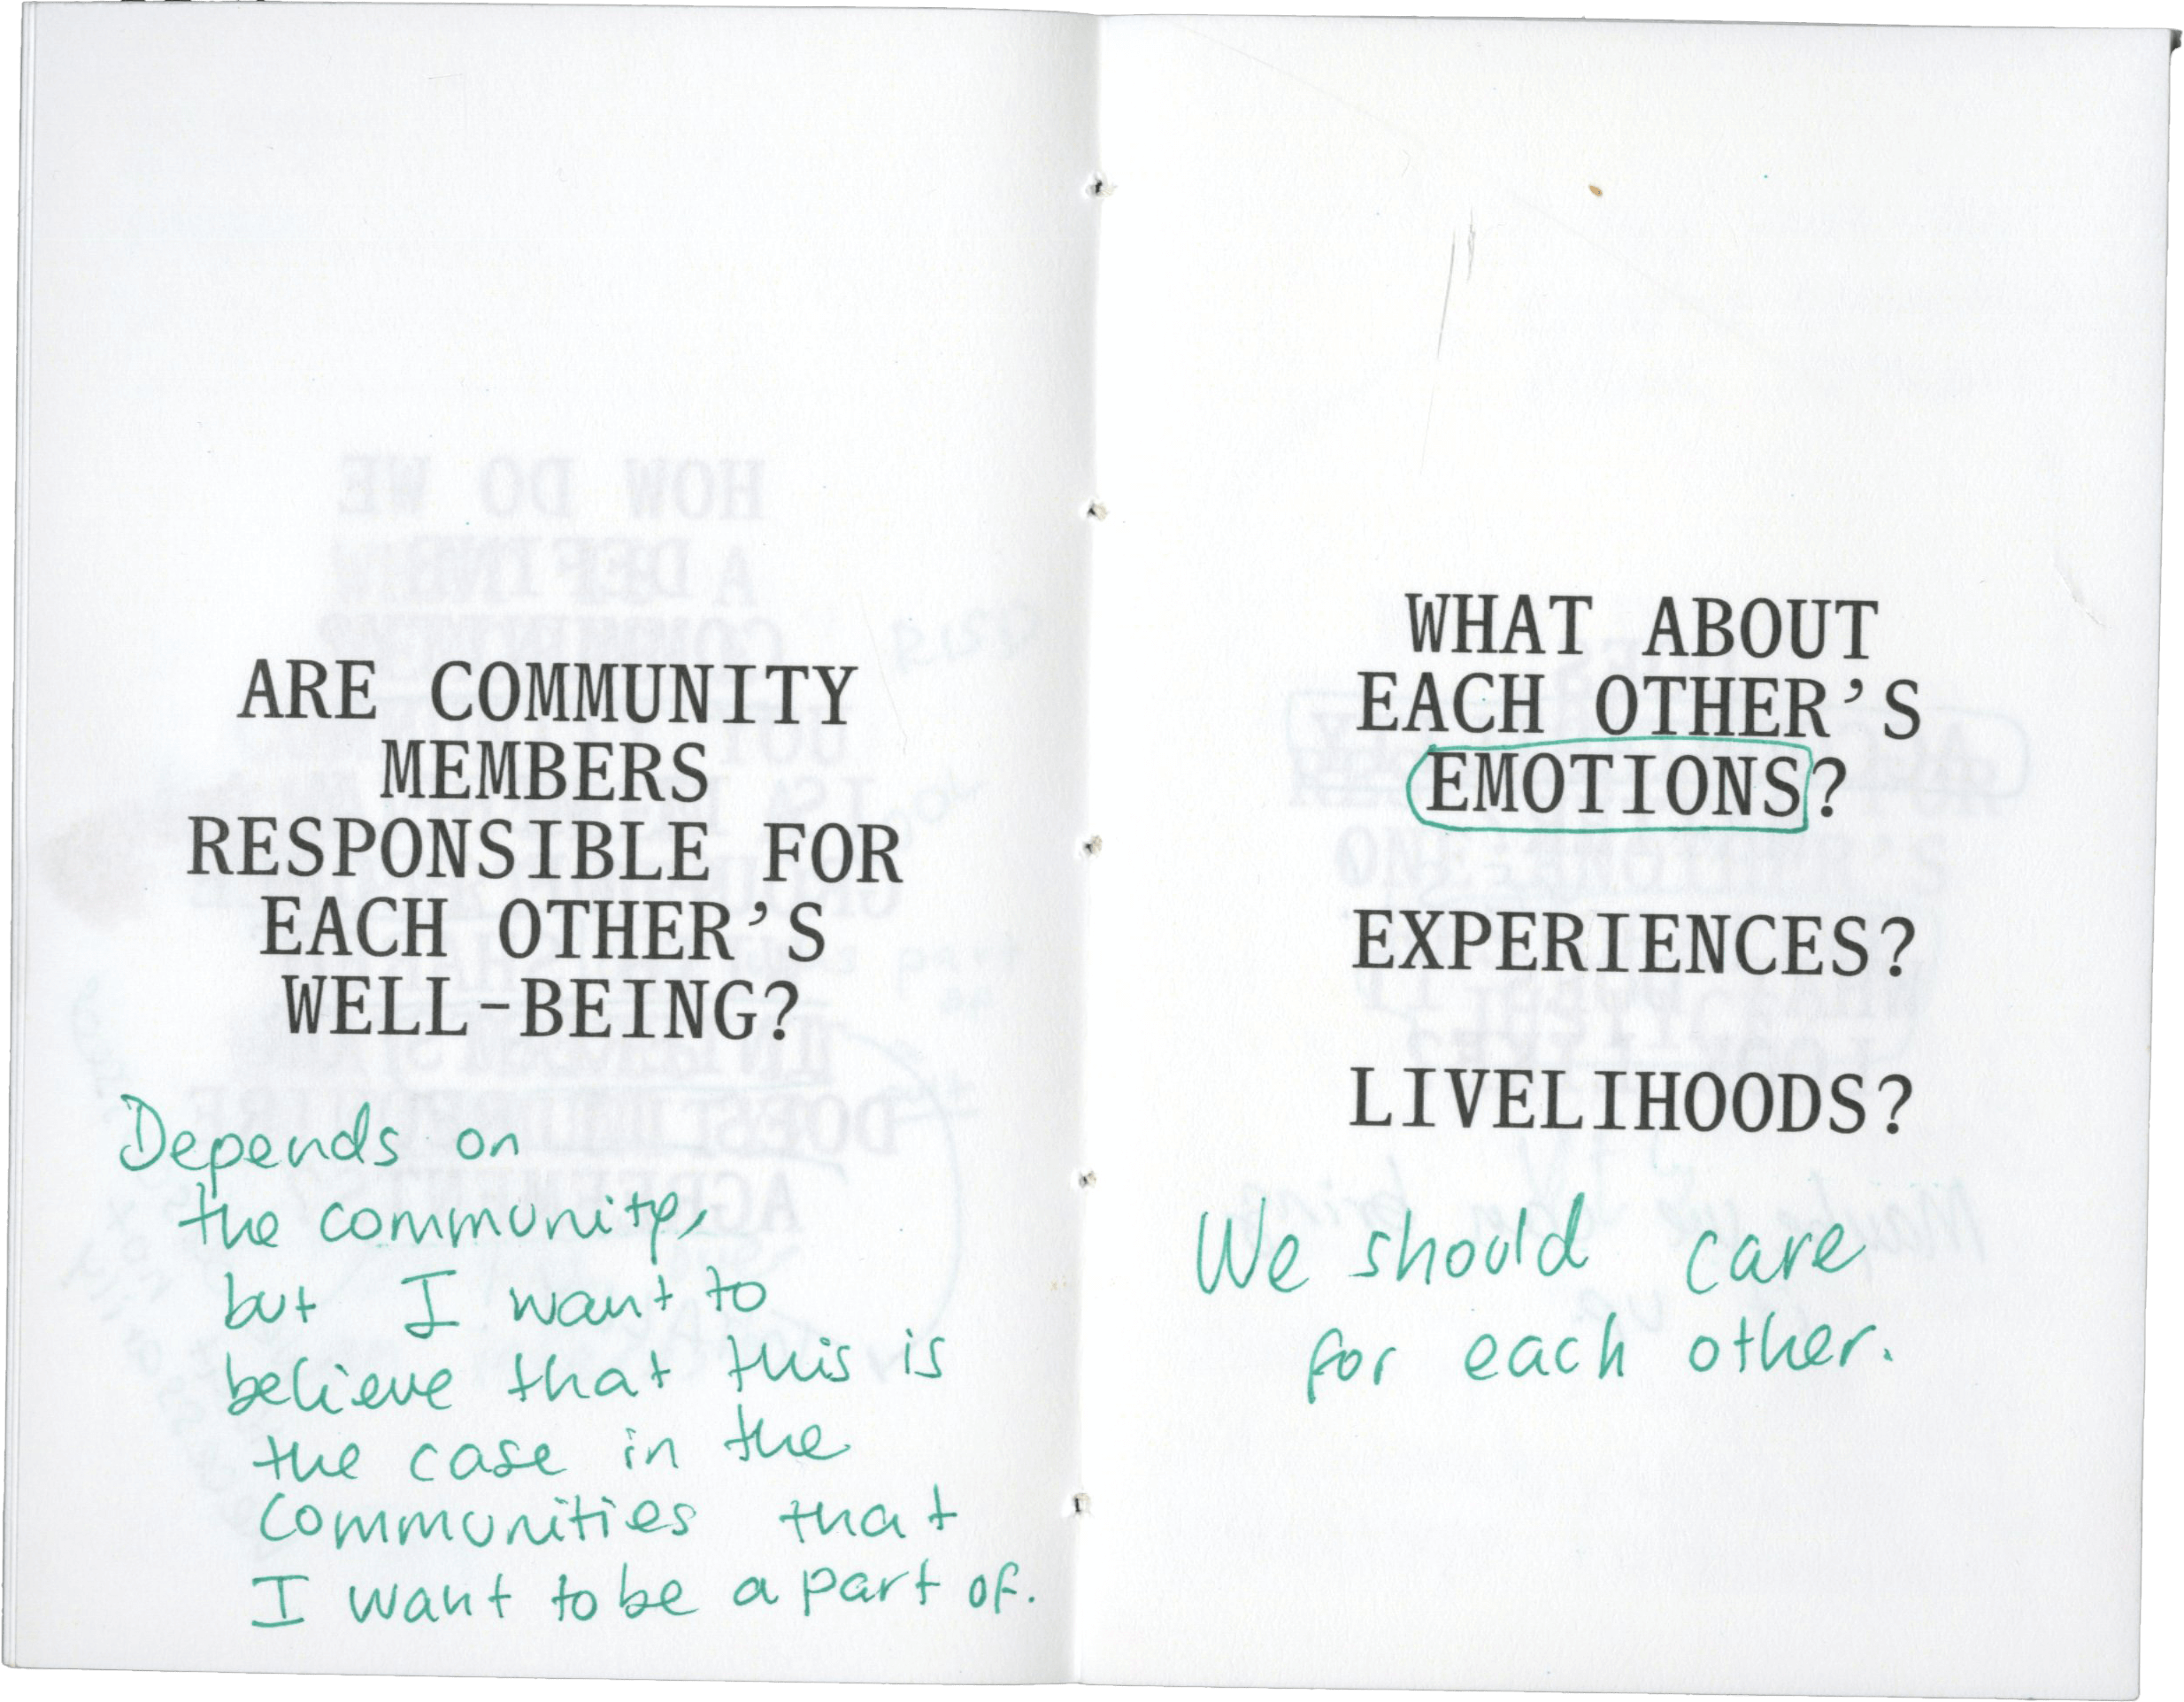 ARE COMMUNITY
MEMBERS
RESPONSIBLE FOR
EACH OTHER’S
WELL-BEING?
Depends on
the community,
but I want to
believe that this is
the case in the
communities that
I want to be a part of.
WHAT ABOUT
EACH OTHER’S
EMOTIONS?
EXPERIENCES?
LIVELIHOODS?
We should care
for each other.
HOW DO WE